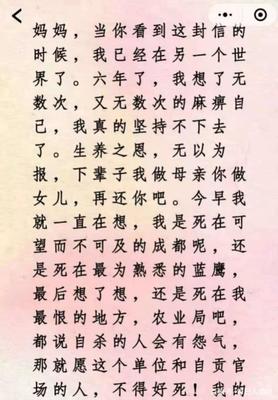 妈妈，当你看到这封信的
时候，我已经在另一个世
界了。六年了，我想了无
数次，又无数次的麻痹自
己，我真的坚持不下去
了。生养之恩，无以为
报，下辈子我做母亲你做
女儿，再还你吧。今早我
就一直在想，我是死在可
望而不可及的成都呢，还
是死在最为熟悉的蓝鹰，
最后想了想，还是死在我
最恨的地方，农业局吧，
都说自杀的人会有怨气，
那就愿这个单位和自贡官
场的人，不得好死！我的